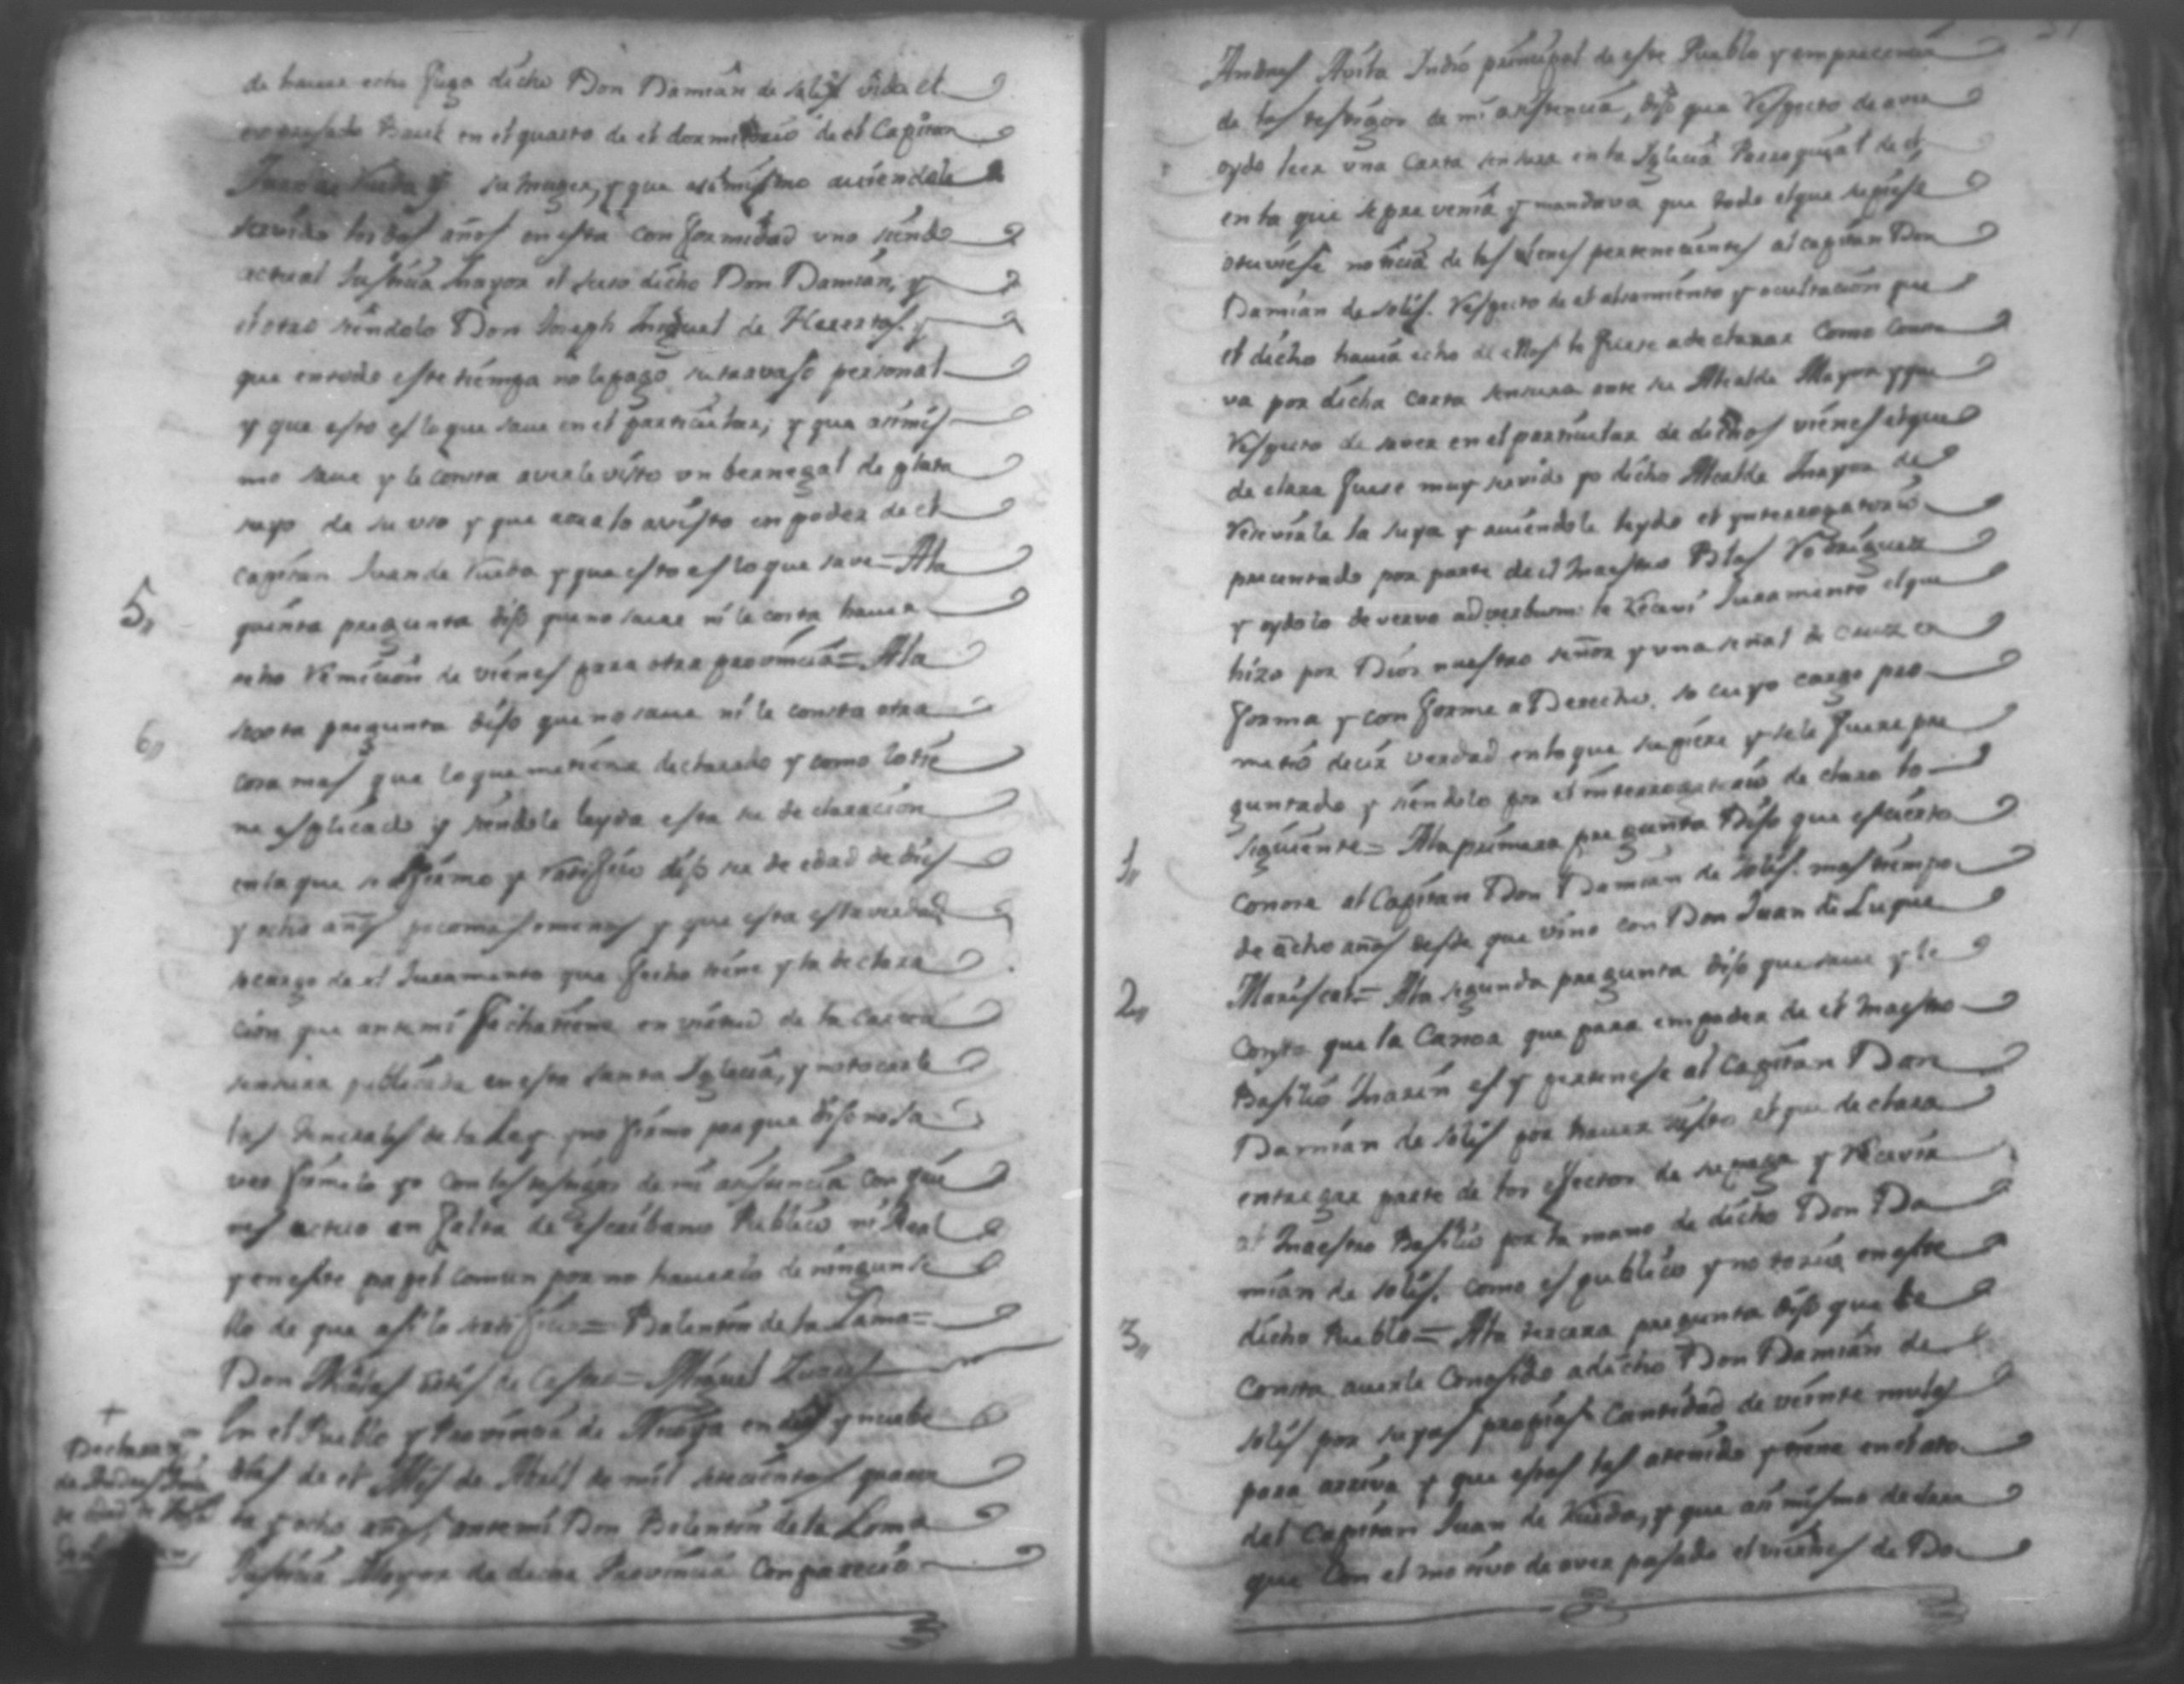 de hauer echo fuga dicho Don Damian de solis vido el
expresado Baul en el quarto de el dormitorio de el Capitan
Juan de Rueda y su muger, y que asimismo auiendole
servido los dos años en esta conformidad uno siendo
actual Justicia mayor el suso dicho Don Damian, y
el otro siendolo Don Joseph Miguel de
que en todo este tiempo no le pago su travajo personal
y que esto es lo que saue en el particular, y que asimis
mo saue y le consta averle visto un bernegal de plata
suyo de su uso y que aora lo a visto en poder de el
capitan Juan de Rueda y que esto es lo que save = Ala
5,, quinta pregunta dijo que no saue ni le costa hauer
echo remicion de vienes para otra provincia = Ala
6,, sexta pregunta dijo que no saue ni le consta otra
cosa mas que lo que me tiene declarado y como lo tie
ne esplicado y siendole leyda esta su declaracion
en la que se afirmo y ratifico dijo ser de edad de dies
y ocho años poco mas o menos y que esta es la verdad
so cargo de el Juramento que fecho tiene y la declara
cion que ante mi fecha tiene en virtud de la carta
sensura publicada en esta santa Iglecia, y no tocarle
las Generales de la Ley y no firmo porque dijo no sa
ver firmelo yo con los testigos de mi asistencia con quie
nes actuo en falta de escribano Publico ni Real
y en este papel comun por no hauerlo de ningun se
llo de que asi lo sertifico = Balentin de la Loma =
Don Solis de Castro = Miguel
En el Pueblo y Provincia de en dies y nuebe
dias de el Mes de Abril de mil setecientos quaren
ta y ocho años, ante mi Don Balentin de la Loma
Justicia Mayor de dicha Provincia comparecio
+
Declaraz.n
de Andres Avila
de edad de
Andres Avila Indio principal de este Pueblo y em precencia
de los testigos de mi asistencia, dijo que respecto de aver
oydo leer una carta sensura en la Iglecia Parroquial de el
en la que se prevenia y mandava que todo el que supiese
o tuviese noticia de los vienes pertenecientes al capitan Don
Damian de solis. respecto de el alsamiento y ocultacion que
el dicho hauia echo de ellos lo fuese a declarar como consta
va por dicha carta sensura ante su Alcalde Mayor y que
respecto de saver en el particular de dichos vienes el que
declara fuese muy servido yo dicho Alcalde mayor de
recevirle la suya y auiendole leydo el ynterrogatorio
precentado por parte de el maestro Blas Rodriguez
y oydolo de vervo adverbum le receui Juramento el que
hizo por Dios nuestro señor y una señal de cruz en
forma y conforme a Derecho, so cuyo cargo pro
metio decir verdad en lo que supiere y se le fuere pre
guntado y siendolo por el interrogatorio declaro lo
1,, siguiente = Ala primera pregunta Dijo que es cierto
conose al Capitan Don Damian de solis. mas tiempo
de ocho años desde que vino con Don Juan de Luque
2,, Mariscal = Ala segunda pregunta dijo que saue y le
consta que la Canoa que para em poder de el maestro
Basilio Marin es y pertenese al Capitan Don
Damian de solis por hauer visto el que declara
entregar parte de los efectos de su paga y recevir
al maestro Basilio por la mano de dicho Don Da
mian de solis, como es publico y notorio en este
3,, dicho Pueblo = Ala tercera pregunta dijo que le
consta averle conosido a dicho Don Damian de
solis por suyas propias cantidad de veinte mulas
para arriva y que estas las a tenido y tiene en el ato
del Capitan Juan de Rueda, y que asi mismo declara
que con el motivo de aver pasado el viernes de Do